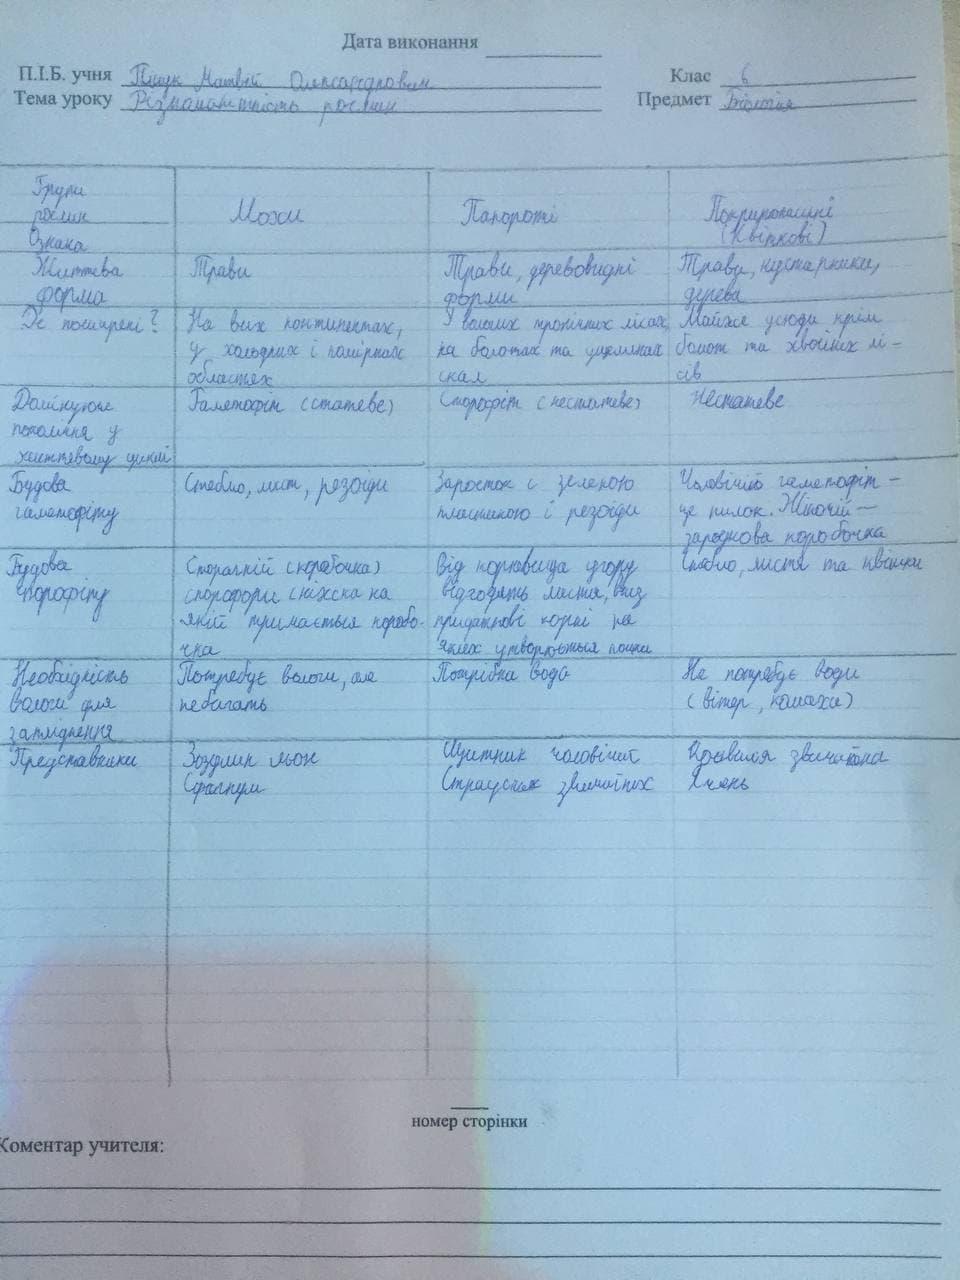 Дата виконання
П.І.Б. учня Пищук Матвій Олександрович
Клас 6
Тема уроку Різноманітність рослин
Предмет Біологія
Групи
рослин
Ознака
Мохи
Папороті
Покритонасінні
(Квіткові)
Життєва
форма
Трави
Трави, деревовидні
форми
Трави, кустарники,
дерева
Де поширені?
На всіх континентах,
у холодних і помірних
областях
У вологих тропічних лісах,
на болотах та ущелинах
скал
Майже усюди крім
болот та хвойних лі-
сів
Домінуюче
покоління у
життєвому циклі
Гаметофіт (статеве)
Спорофіт (нестатеве)
Нестатеве
Будова
гаметофіту
Стебло, лист, резоїди
Заросток с зеленою
пластиною і резоїди
Чоловічий гаметофіт -
це пилок. Жіночій -
зародкова коробочка
Будова
спорофіту
Спорангій (коробочка)
спорофори (ніжка на
якій тримається коробо-
чка
Від корневища угору
відходять листя, вниз
придаткові корні на
яких утворюються почки
Стебло, листя та квітки
Необхідність
вологи для
запліднення
Потребує вологи, але
небагать
Потрібна вода
Не потребує води
(вітер, комахи)
Представники
Зозулин льон
Сфагнум
Щитник чоловічий
Страусник звичайних
Кропива звичайна
Ячмень
номер сторінки
Коментар учителя: